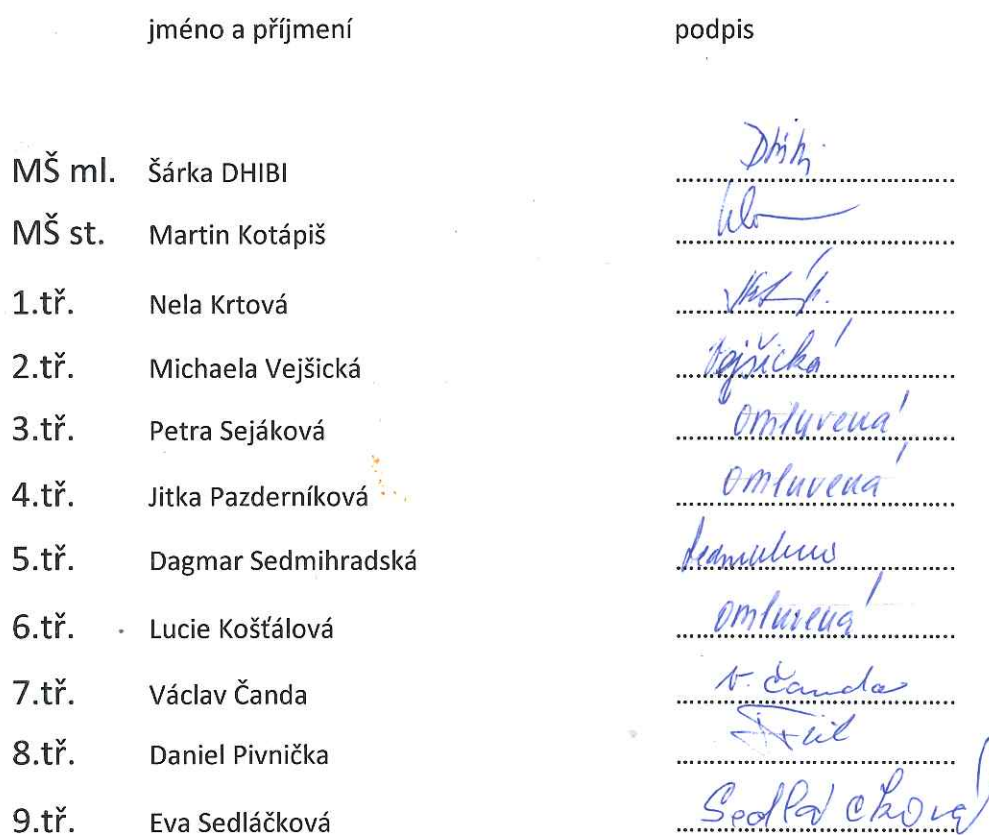 jméno a příjmení podpis
MŠ ml. Šárka DHIBI
MŠ st. Martin Kotápiš
1.tř. Nela Krtová
2.tř. Michaela Vejšická Vejšická
3.tř. Petra Sejáková omluvená
4.tř. Jitka Pazderníková omluvená
5.tř. Dagmar Sedmihradská
6.tř. Lucie Košťálová omluvená
7.tř. Václav Čanda V. Čanda
8.tř. Daniel Pivnička
9.tř. Eva Sedláčková Sedláčková